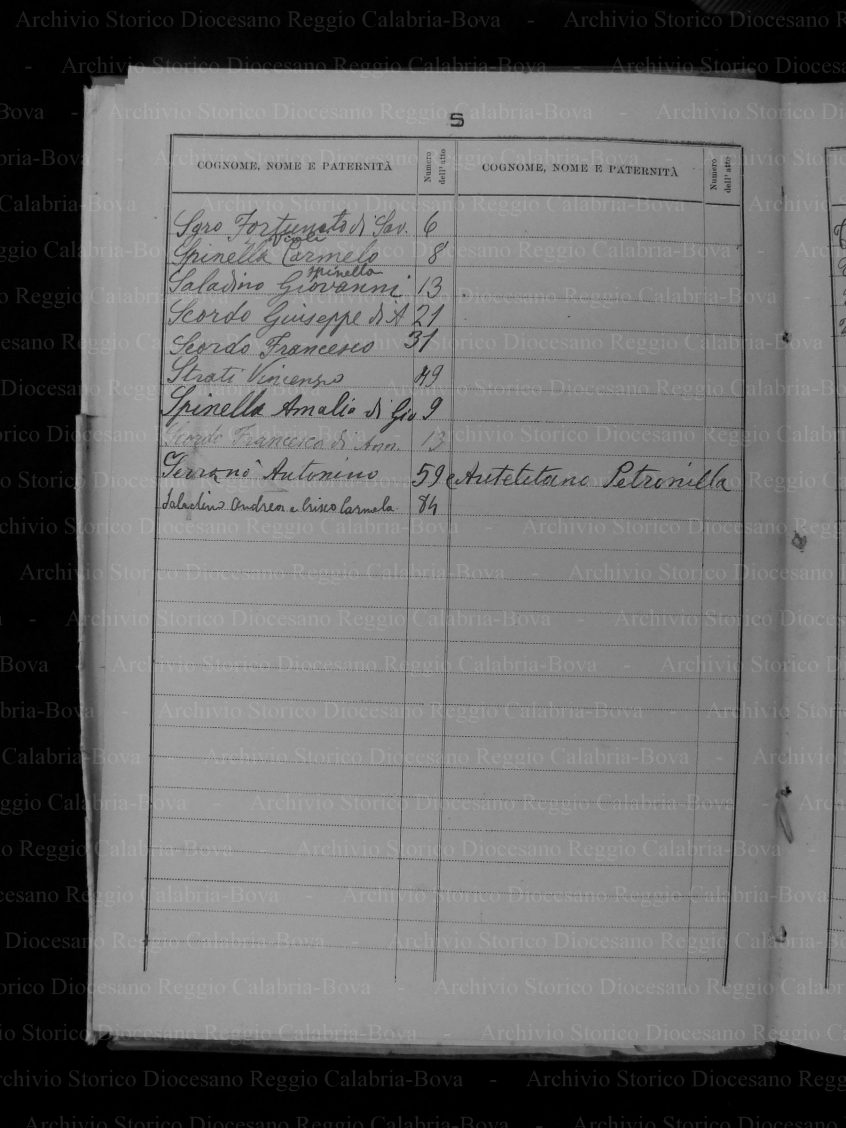 S
COGNOME, NOME E PATERNITÀ Numero dell'atto COGNOME, NOME E PATERNITÀ Numero dell'atto
Sgro Fortunato di Sav. 6
Spinella Carmelo 8
Spinella
Saladino Giovanni 13
Scordo Giuseppe di A 21
Scordo Francesco 31
Strati Vincenzo 49
Spinella Amalia di Gio 9
Scordo Francesca di Ann. 13
Serranò Antonino 59 e Autelitano Petronilla
Saladino Andrea e Criseo Carmela 84
Archivio Storico Diocesano Reggio Calabria-Bova